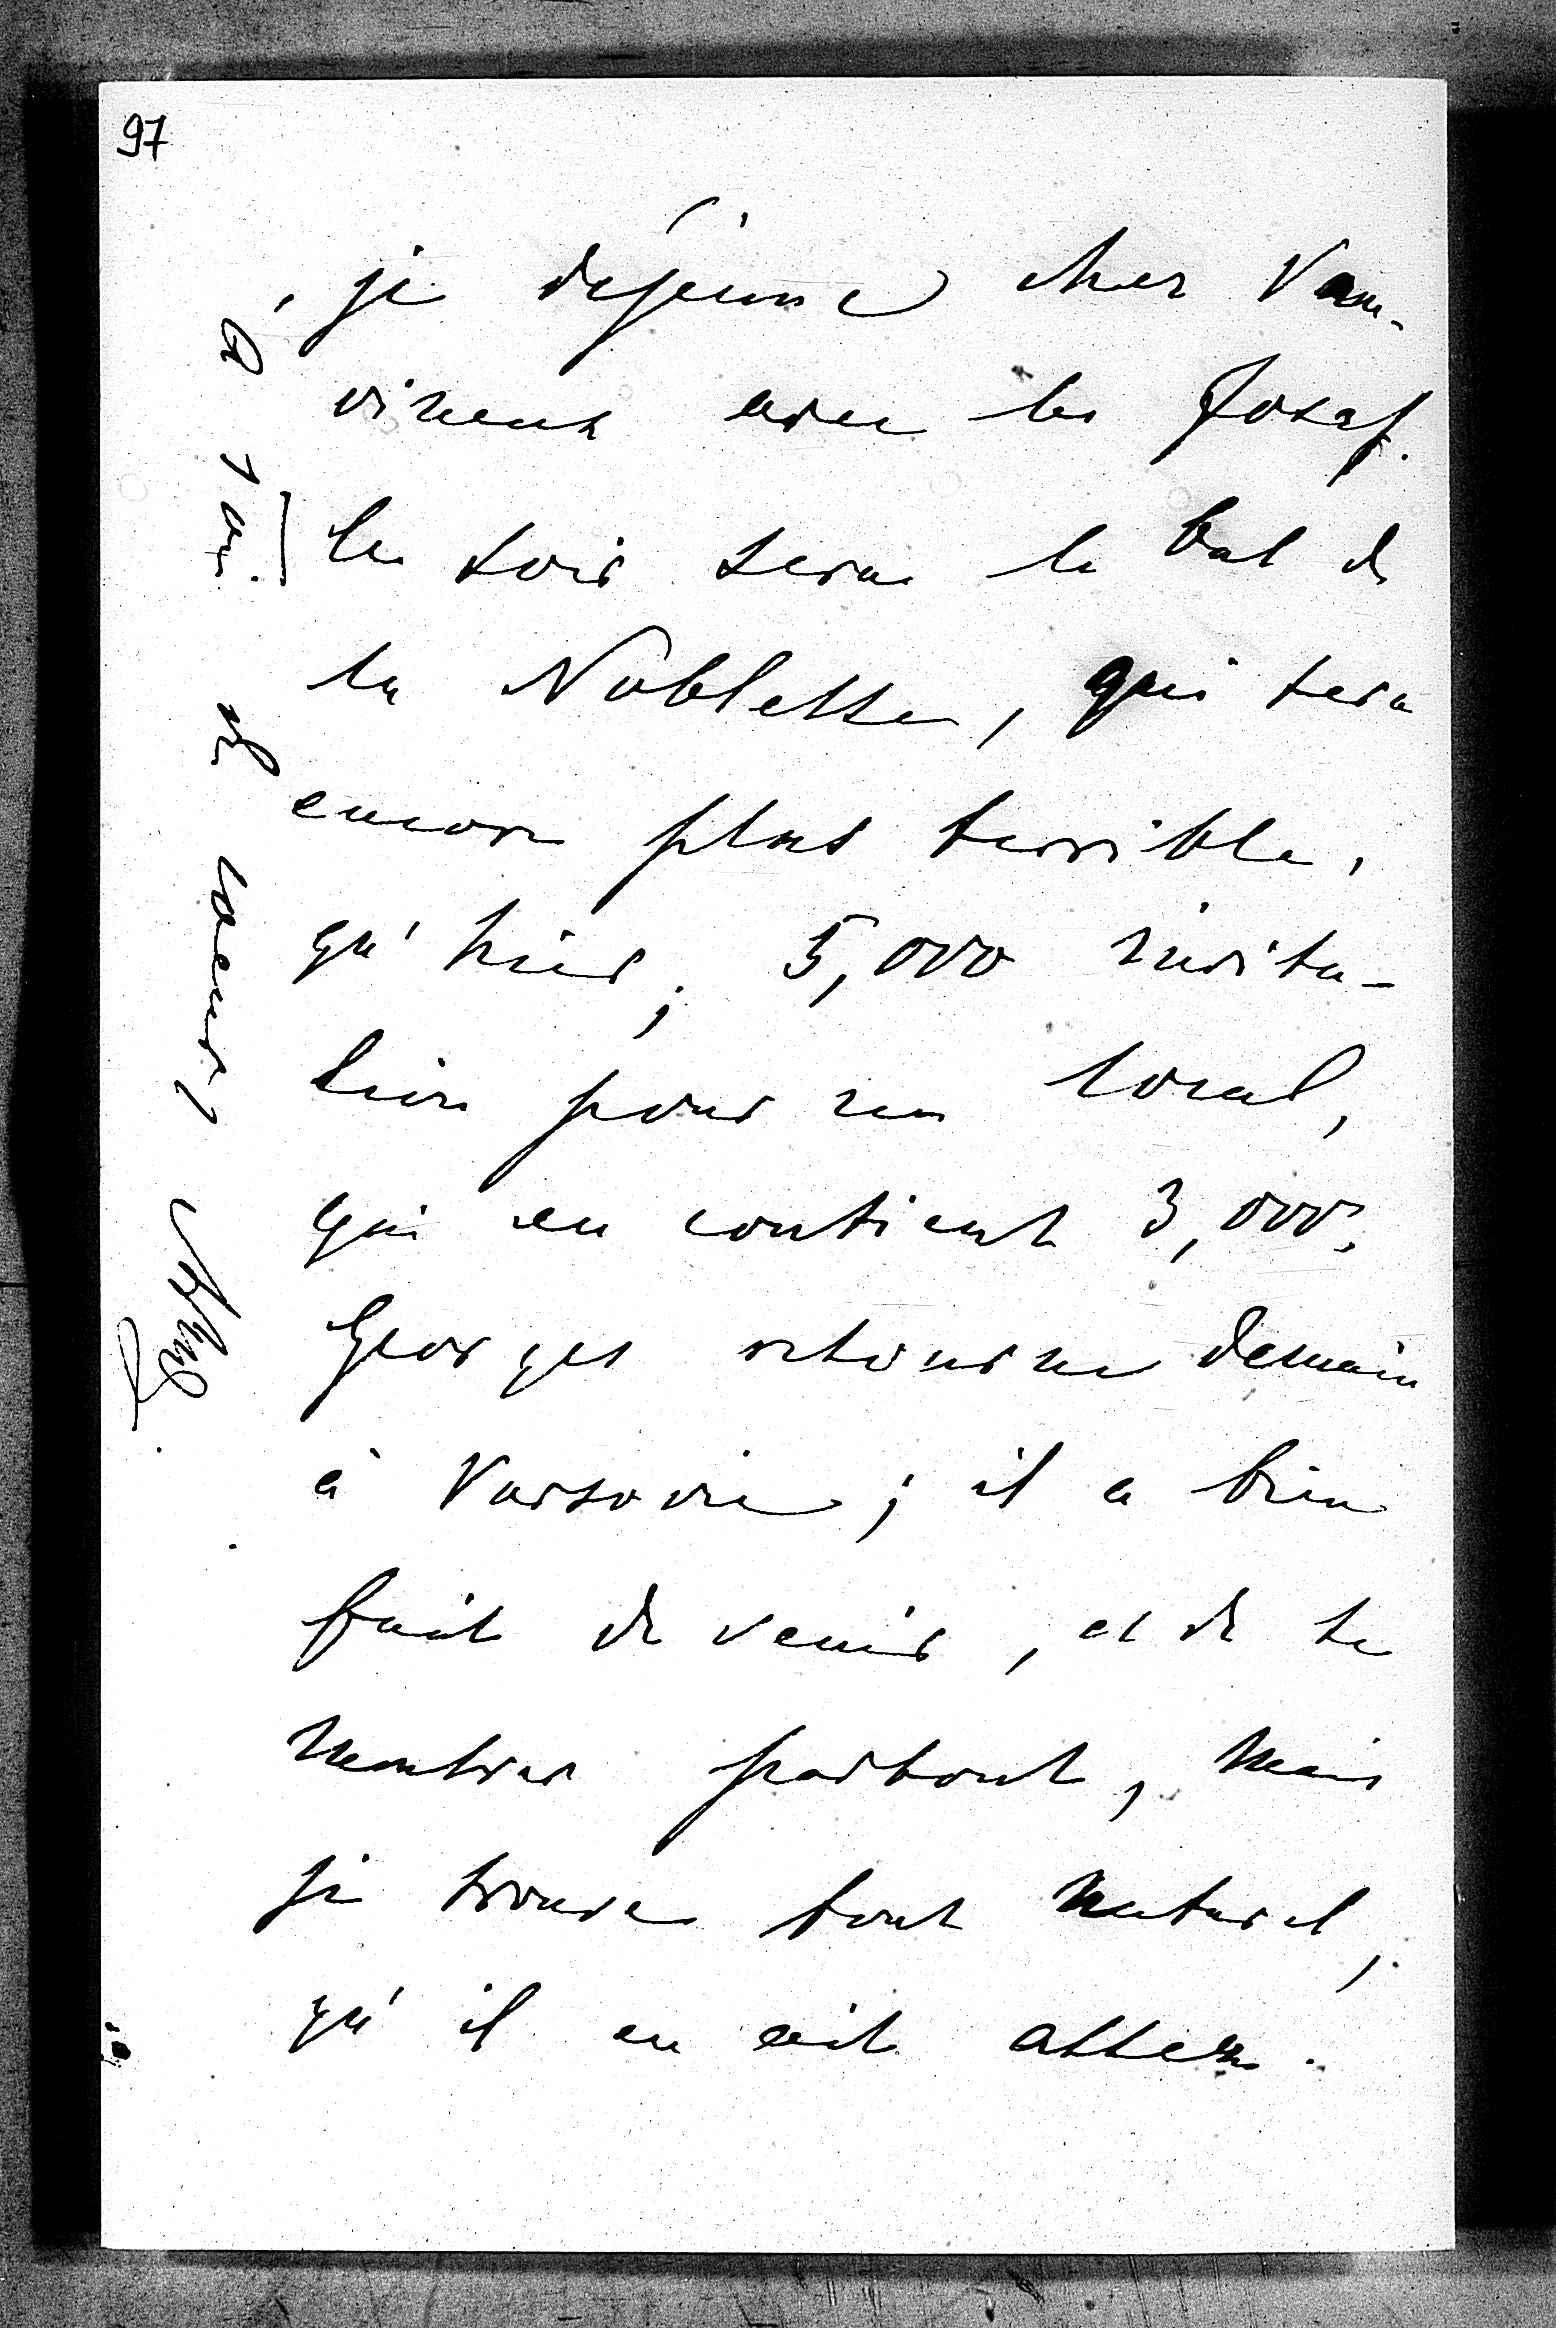 97
je dejeune chez Van-
vineux avec les Josaf.
Ce soir sera le bal de
la Noblesse, qui sera
encore plus terrible,
qu'hier; 5,000 invita-
tion pour un local,
qui en contient 3,000.
Georges retourne demain
à Varsovie; il a bien
fait de venir, et de se
montrer partout, mais
je trouve tout naturel,
qu'il en ait assez.
A toi de coeur